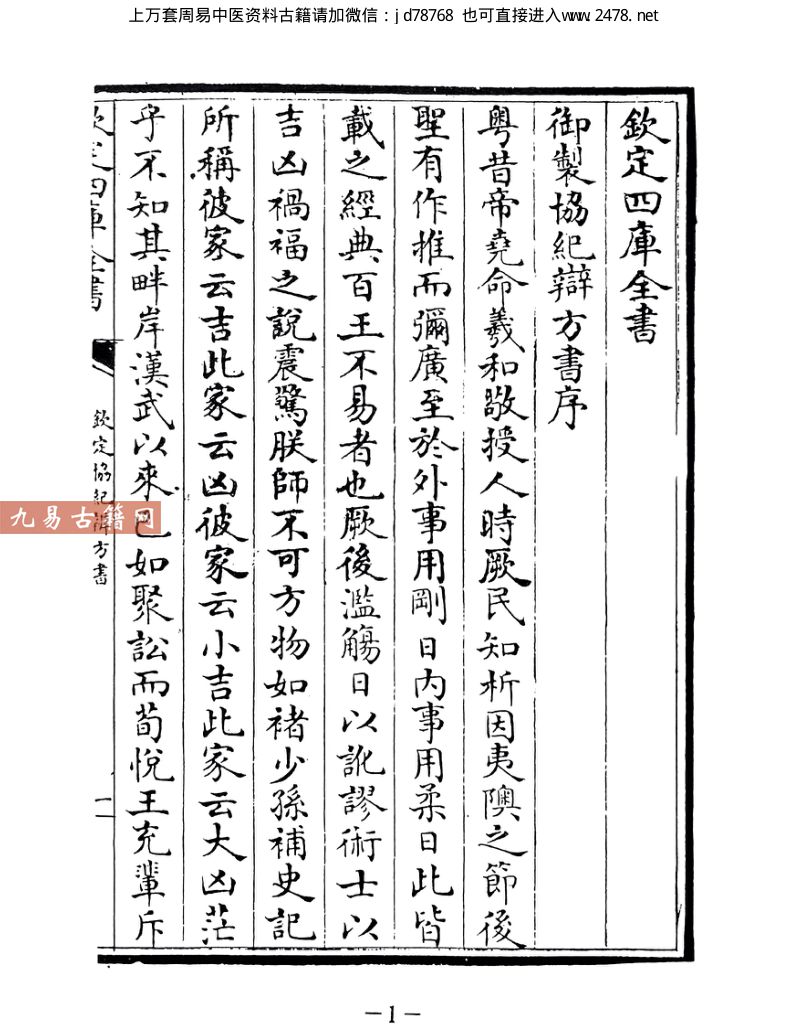 上万套周易中医资料古籍请加微信：jd78768 也可直接进入www.2478.net
欽定四庫全書
御製協紀辯方書序
粤昔帝堯命羲和敬授人時厥民知析因夷隩之節後
聖有作推而彌廣至於外事用剛日内事用柔日此皆
載之經典百王不易者也厥後濫觴日以訛謬術士以
吉凶禍福之說震驚朕師不可方物如褚少孫補史記
所稱彼家云吉此家云凶彼家云小吉此家云大凶茫
乎不知其畔岸漢武以來已如聚訟而荀悅王充輩斥
欽定四庫全書
欽定協紀辨方書
一
九易古籍网
—1—